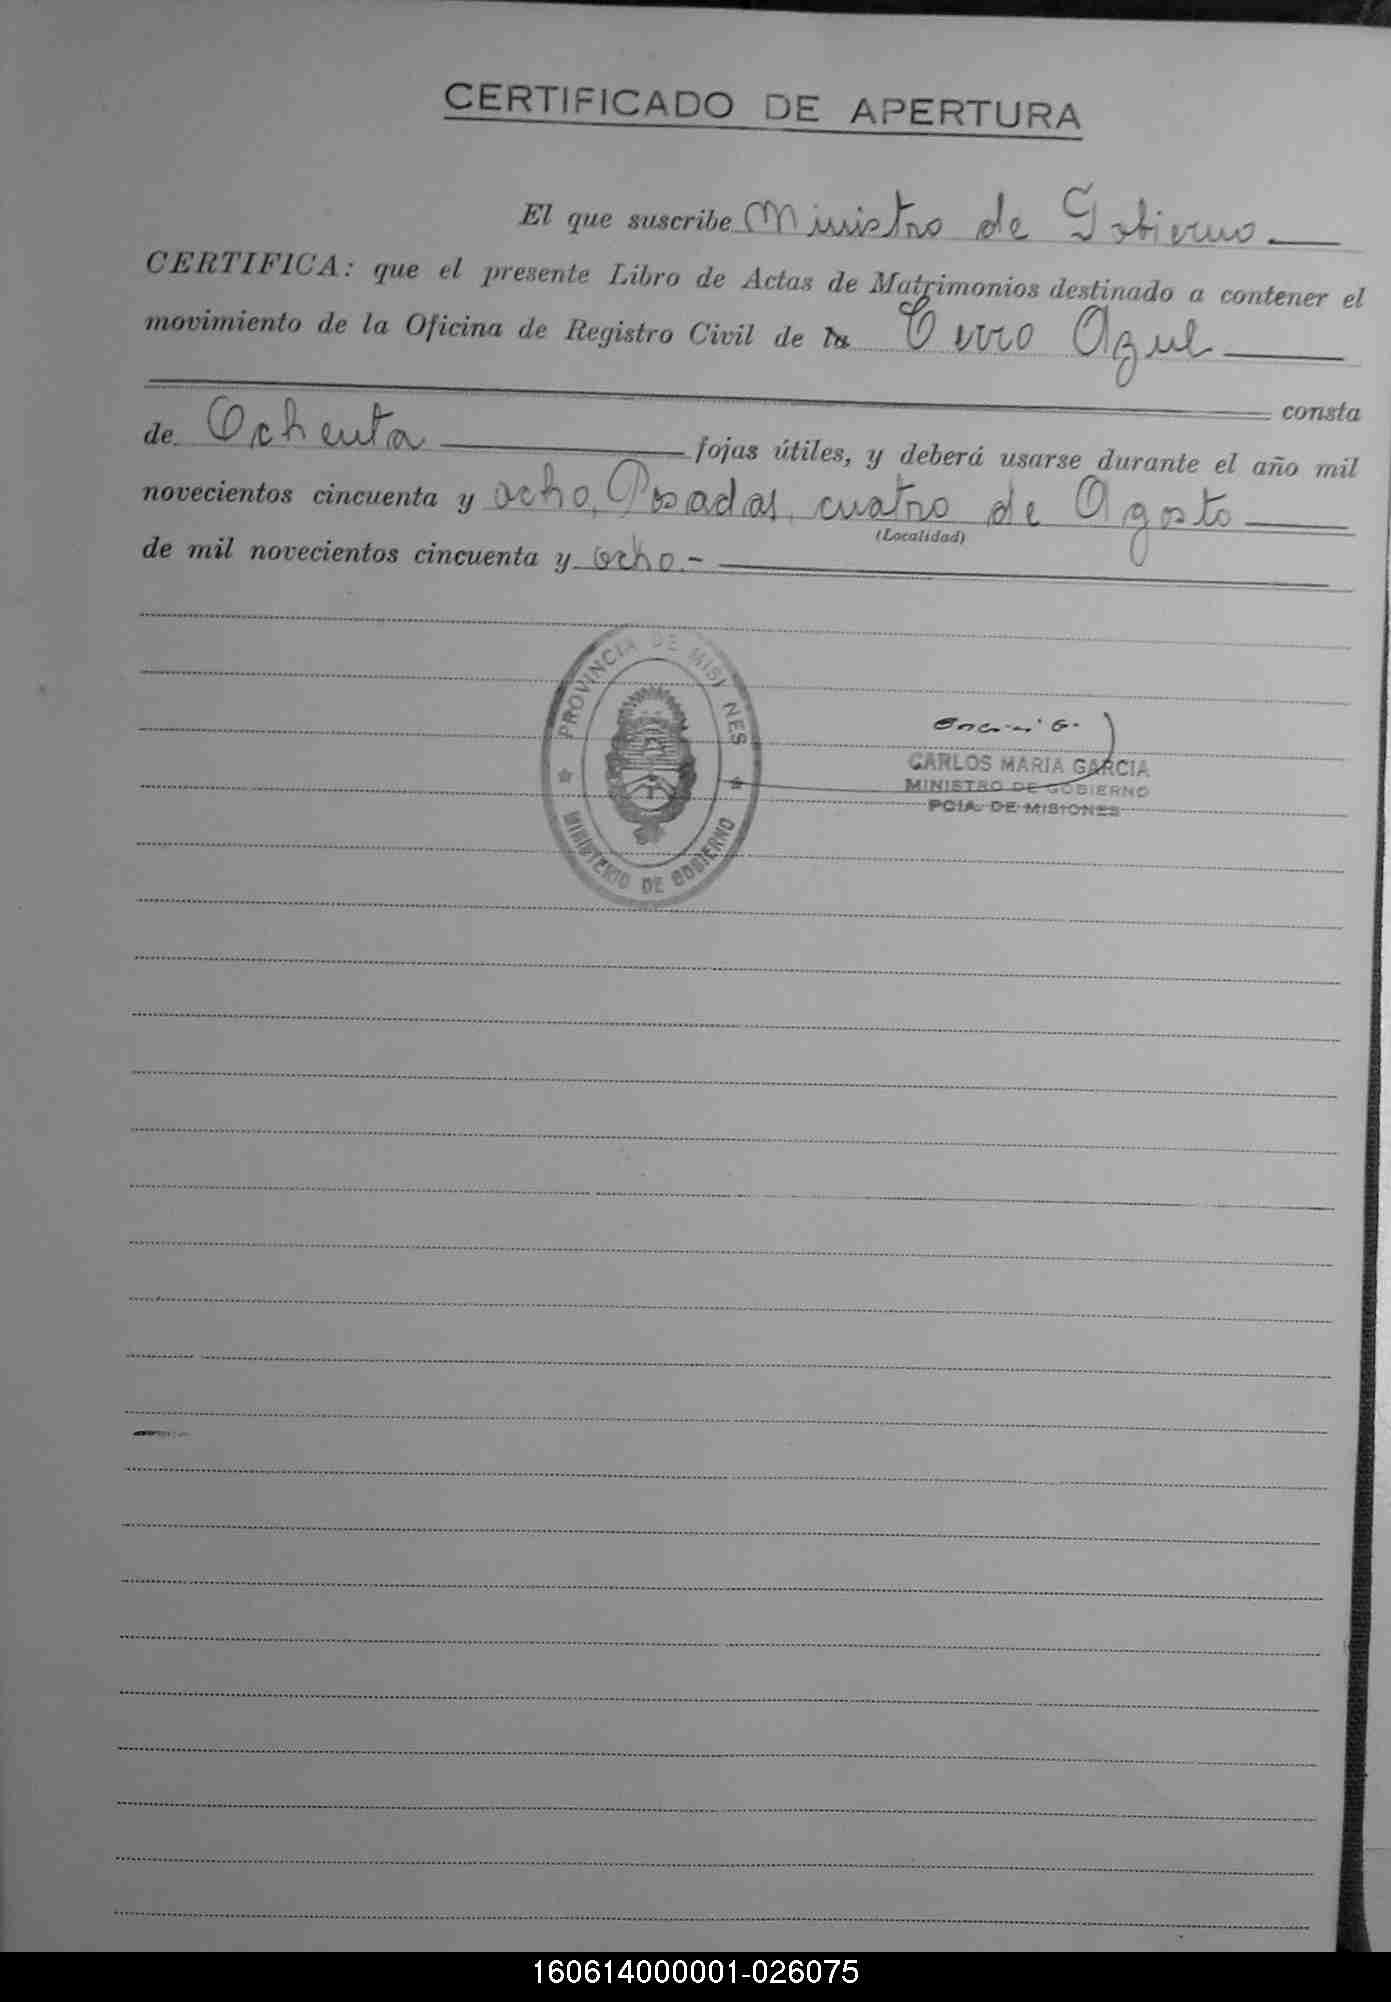 CERTIFICADO DE APERTURA
El que suscribe Ministro de Gobierno
CERTIFICA: que el presente Libro de Actas de Matrimonios destinado a contener el
movimiento de la Oficina de Registro Civil de Cerro Azul
consta
de Ochenta fojas útiles, y deberá usarse durante el año mil
novecientos cincuenta y ocho, Posadas, cuatro de Agosto
(Localidad)
de mil novecientos cincuenta y ocho.-
PROVINCIA DE MISIONES
MINISTERIO DE GOBIERNO
CARLOS MARIA GARCIA
MINISTRO DE GOBIERNO
PCIA. DE MISIONES
160614000001-026075